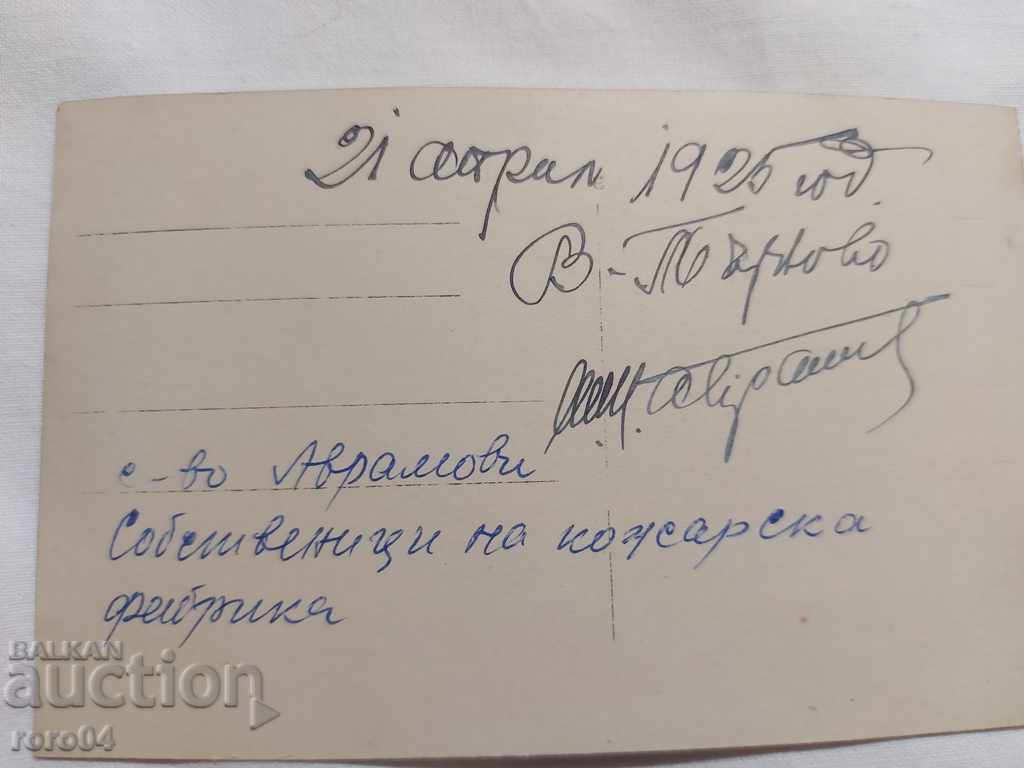 21 април 1925 год.
В-Търново
с-во Аврамови
Собственици на кожарска
фабрика
BALKAN
auction
roro04